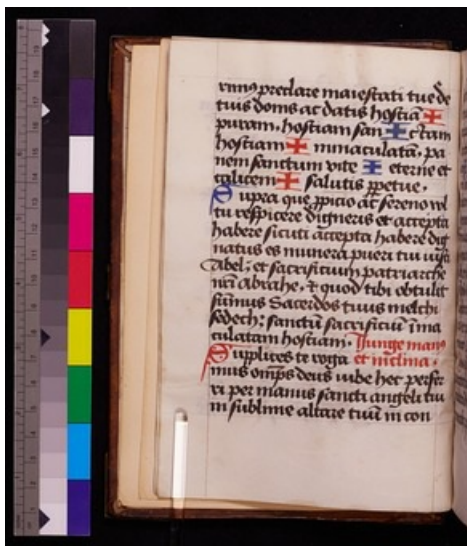 rimꝰ preclare maiestati tue de
tuis donis ac datis hostiā ✠
puram, hostiam san ✠ ctam
hostiam ✠ inmaculatā, pa
nem sanctum vite ✠ eterne et
calicem ✠ salutis ꝑpetue.
Supra que ꝓpicio ac sereno vul
tu respicere digneris et accepta
habere sicuti accepta habere dig
natus es munera pueri tui iusti
Abel; et sacrificium patriarche
nr̄i abrahe, ⁊ quod tibi obtulit
sūmus Sacerdos tuus melchi
sedech: sanctū sacrificiū ima
culatam hostiam. Iunge manꝰ
Supplices te roga et inclina.
mus omp̄s deus iube hec perfer
ri per manus sancti angeli tui
in sublime altare tuū in con